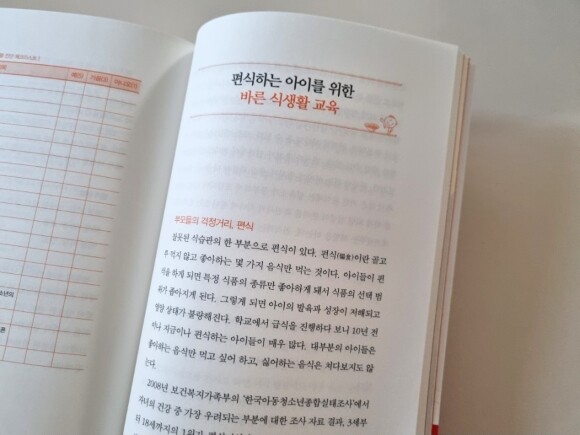 편식하는 아이를 위한
바른 식생활 교육
부모들의 걱정거리, 편식
잘못된 식습관의 한 부분으로 편식이 있다. 편식(偏食)이란 골고
루 먹지 않고 좋아하는 몇 가지 음식만 먹는 것이다. 아이들이 편
식을 하게 되면 특정 식품의 종류만 좋아하게 돼서 식품의 선택 범
위가 좁아지게 된다. 그렇게 되면 아이의 발육과 성장이 저해되고
영양 상태가 불량해진다. 학교에서 급식을 진행하다 보니 10년 전
이나 지금이나 편식하는 아이들이 매우 많다. 대부분의 아이들은
좋아하는 음식만 먹고 싶어 하고, 싫어하는 음식은 쳐다보지도 않
는다.
2008년 보건복지가족부의 '한국아동청소년종합실태조사'에서
자녀의 건강 중 가장 우려되는 부분에 대한 조사 자료 결과, 3세부
터 18세까지의 1위가